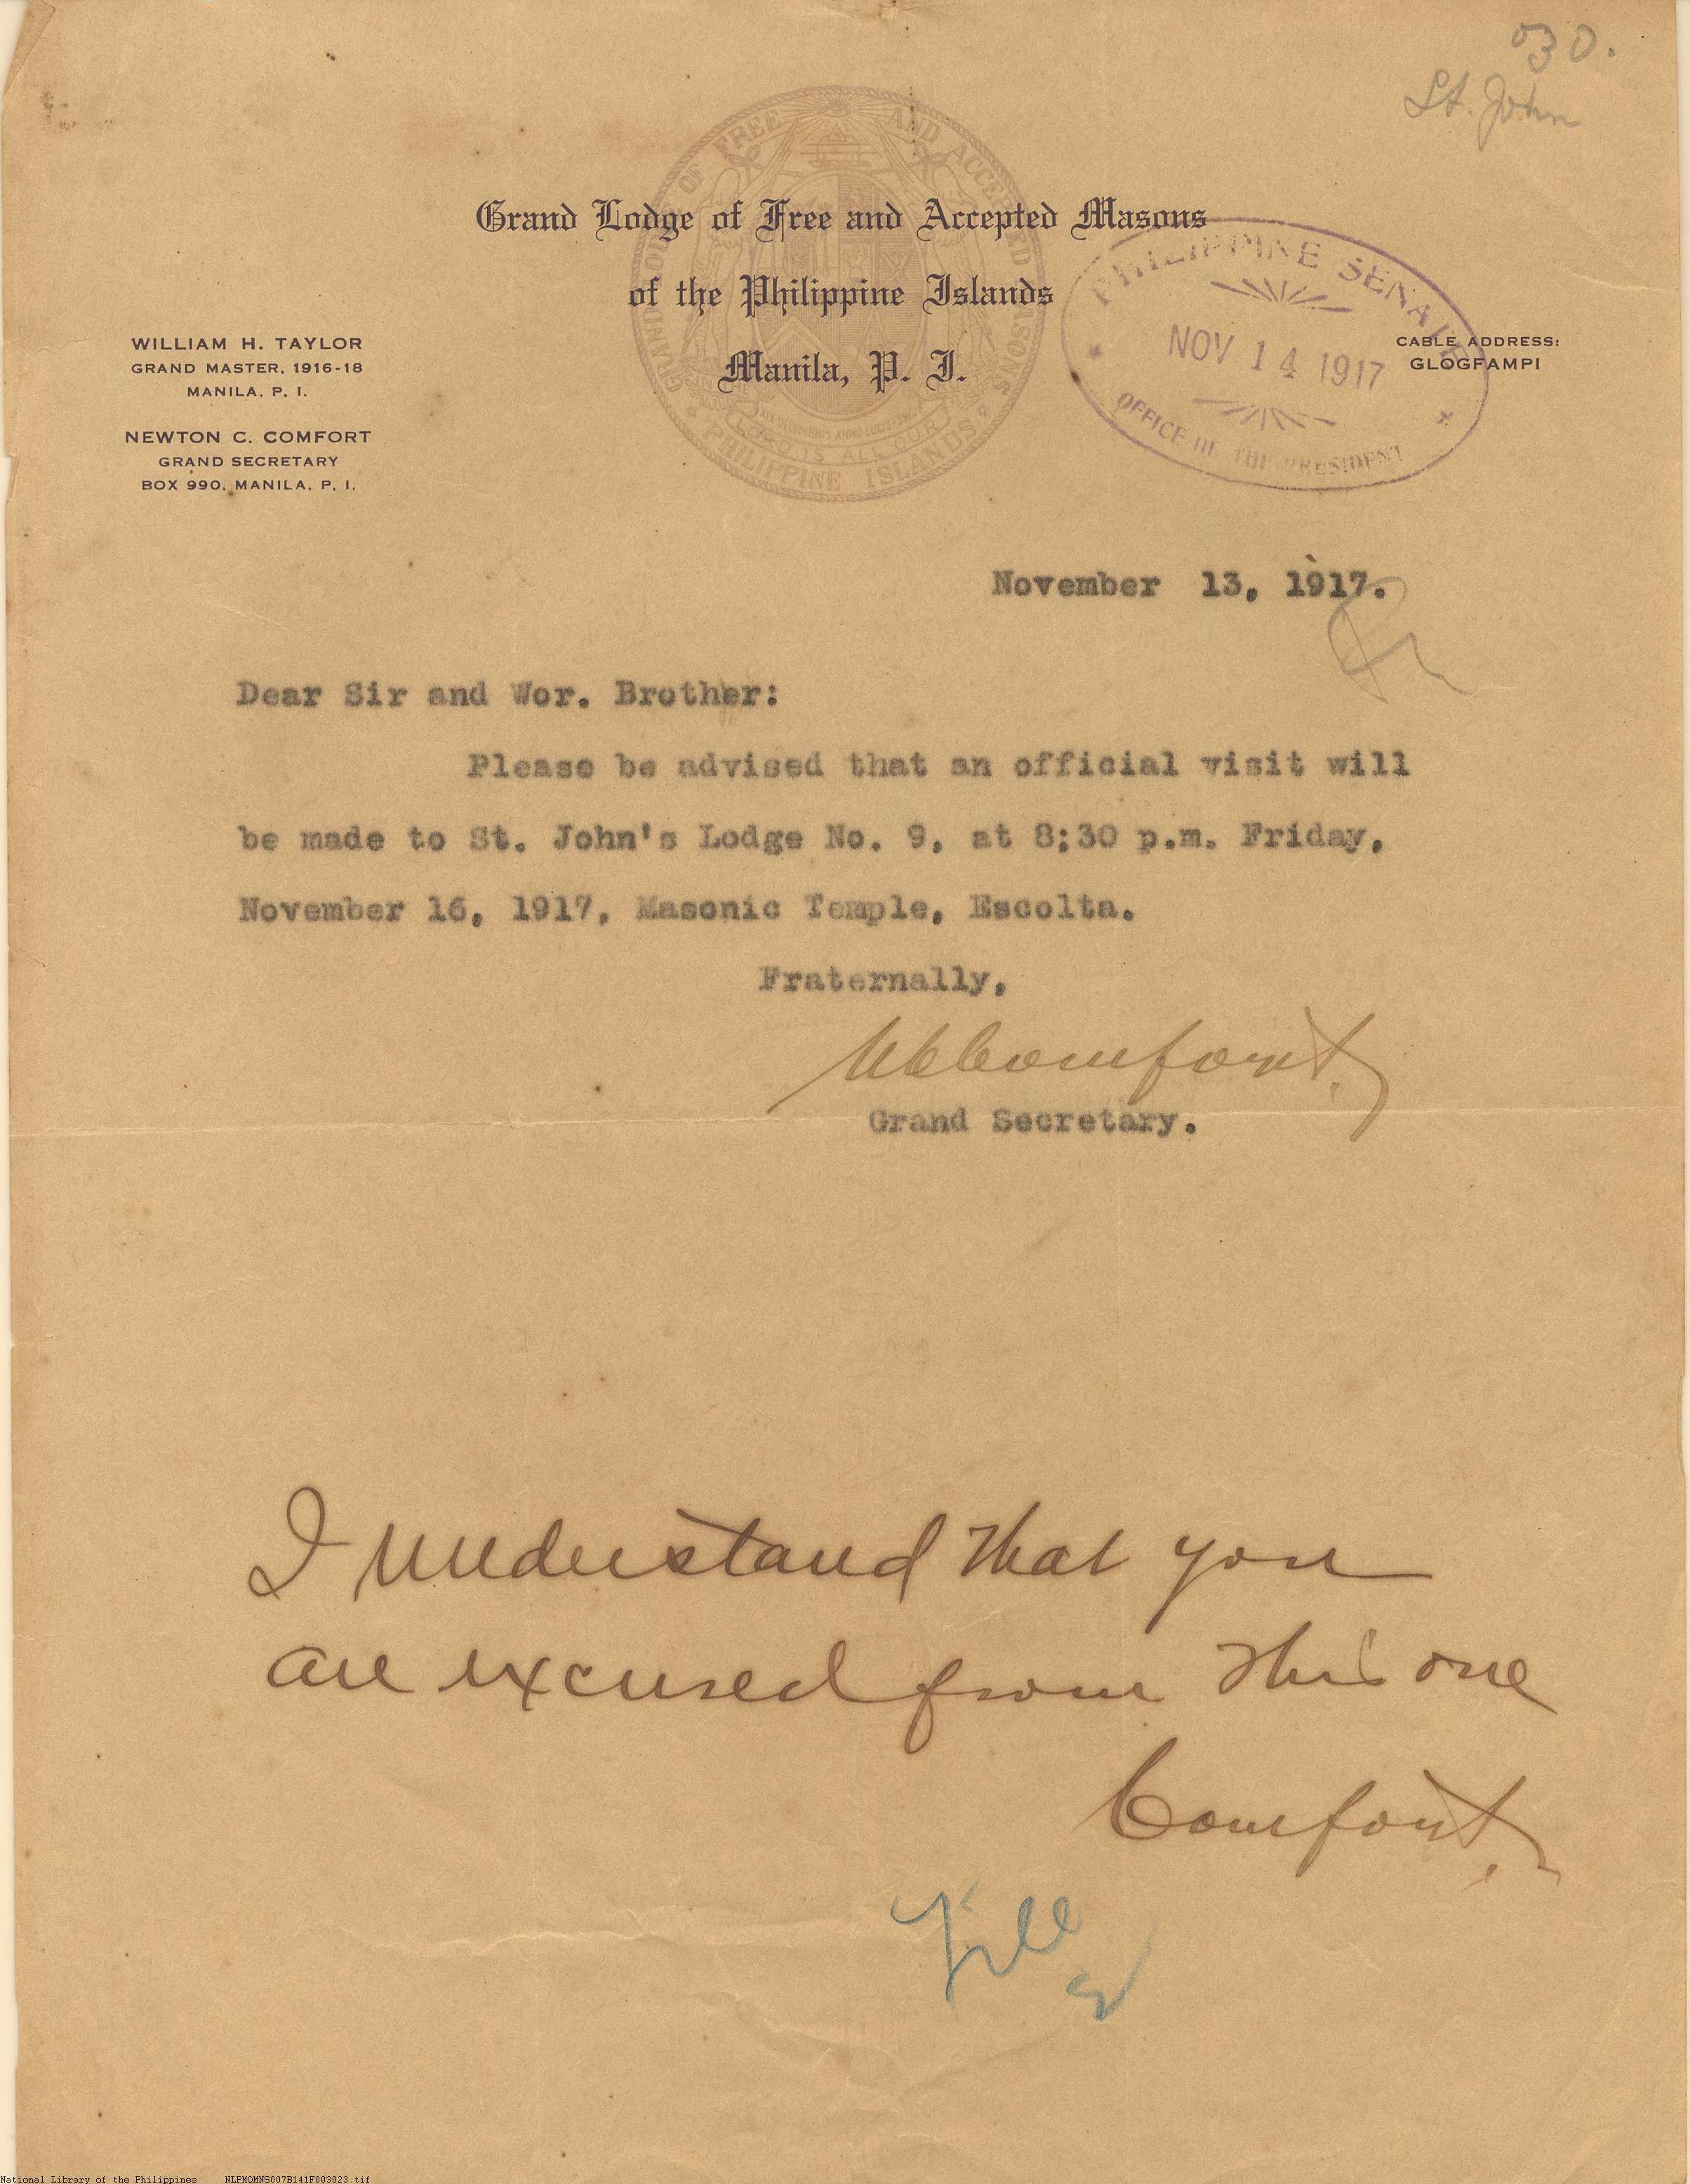 030.
St. John
GRAND LODGE OF FREE AND ACCEPTED MASONS
PHILIPPINE ISLANDS
Grand Lodge of Free and Accepted Masons
of the Philippine Islands
Manila, P. I.
WILLIAM H. TAYLOR
GRAND MASTER, 1916-18
MANILA, P. I.
NEWTON C. COMFORT
GRAND SECRETARY
BOX 990, MANILA, P. I.
PHILIPPINE SENATE
NOV 14 1917
OFFICE OF THE PRESIDENT
CABLE ADDRESS:
GLOGFAMPI
November 13, 1917.
Dear Sir and Wor. Brother:
Please be advised that an official visit will
be made to St. John's Lodge No. 9, at 8:30 p.m. Friday,
November 16, 1917, Masonic Temple, Escolta.
Fraternally,
NCComfort.
Grand Secretary.
I understand that you
are excused from this one
Comfort.
File
National Library of the Philippines NLPMQMNS007B141F003023.tif